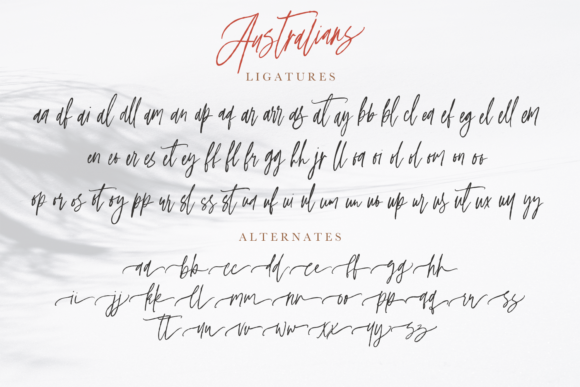 Australians
LIGATURES
aa af ai al all am an ap aq ar arr as at ay bb bl cl ea ef eg el ell em
en eo er es et ey ff fl fr gg hh jr ll oa oi ol om on oo
op or os ot oy pp ur sl ss st ua uf ui ul um un uo up ur us ut ux uy yy
ALTERNATES
aa bb cc dd ee ff gg hh
ii jj kk ll mm nn oo pp qq rr ss
tt uu vv ww xx yy zz